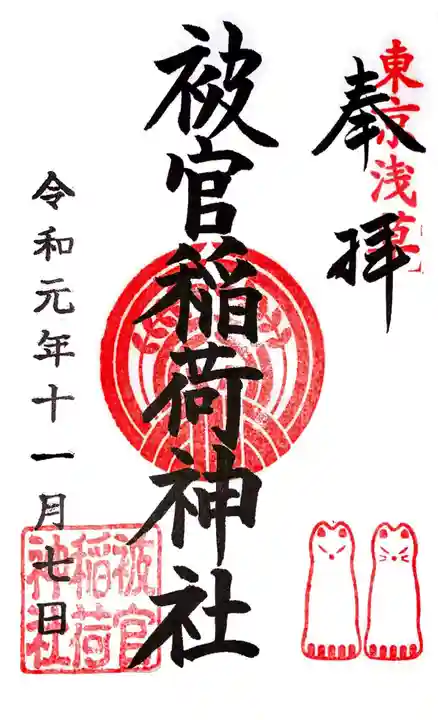 東京浅草
奉拝
被官稲荷神社
令和元年十一月七日
被官
稲荷
神社